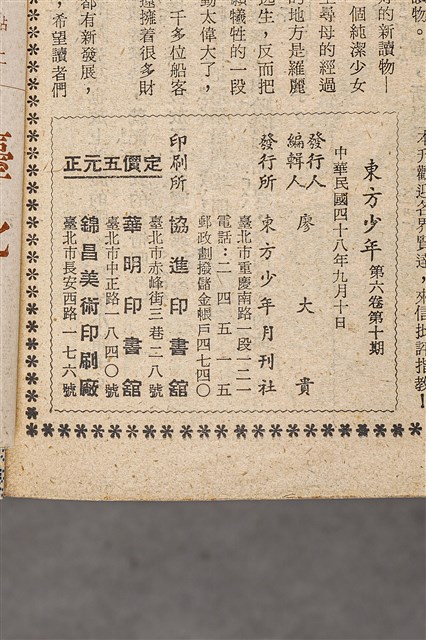 讀物。
好的新讀物—
個純潔少女
尋母的經過
的地方是羅麗
逃生,反而把
犧牲的一段
動太偉大了,
千多位船客
遠擁着很多財
都有新發展,
,希望讀者們
本刊歡迎各界賢達,來信批評指教!
東方少年 第六卷第十期
中華民國四十八年九月十日
發行人
編輯人
廖大貴
發行所 東方少年月刊社
臺北市重慶南路一段一二一
電話:二四五一五
郵政劃撥儲金帳戶四七四〇
印刷所 協進印書舘
臺北市赤峰街三巷二八號
華明印書舘
臺北市中正路一八四〇號
錦昌美術印刷廠
臺北市長安西路一七六號
定價五元正